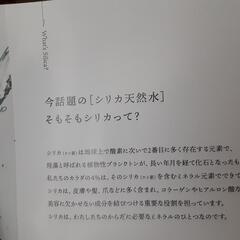 What's Silica?
今話題の[シリカ天然水]
そもそもシリカって?
シリカ(ケイ素)は地球上で酸素に次いで2番目に多く存在する元素で、
珪藻と呼ばれる植物性プランクトンが、長い年月を経て化石となったも
私たちのカラダの4%は、そのシリカ(ケイ素)を含むミネラル元素ででき
シリカは、皮膚や髪、爪などに多く含まれ、コラーゲンやヒアルロン酸な
美容に欠かせない成分を結びつける重要な役割を担っています。
シリカは、わたしたちのからだに必要なミネラルのひとつなのです。